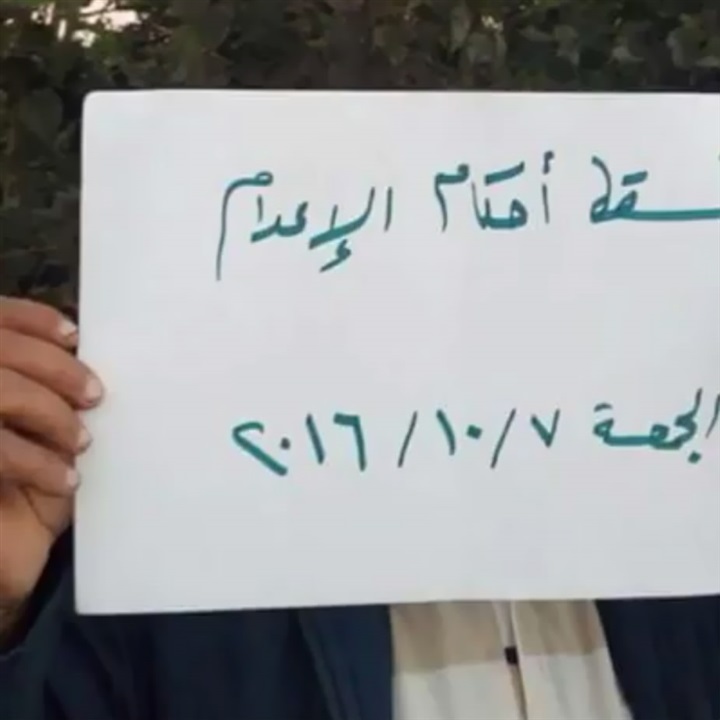 تسقط أحكام الإعدام
الجمعة ٧/١٠/٢٠١٦